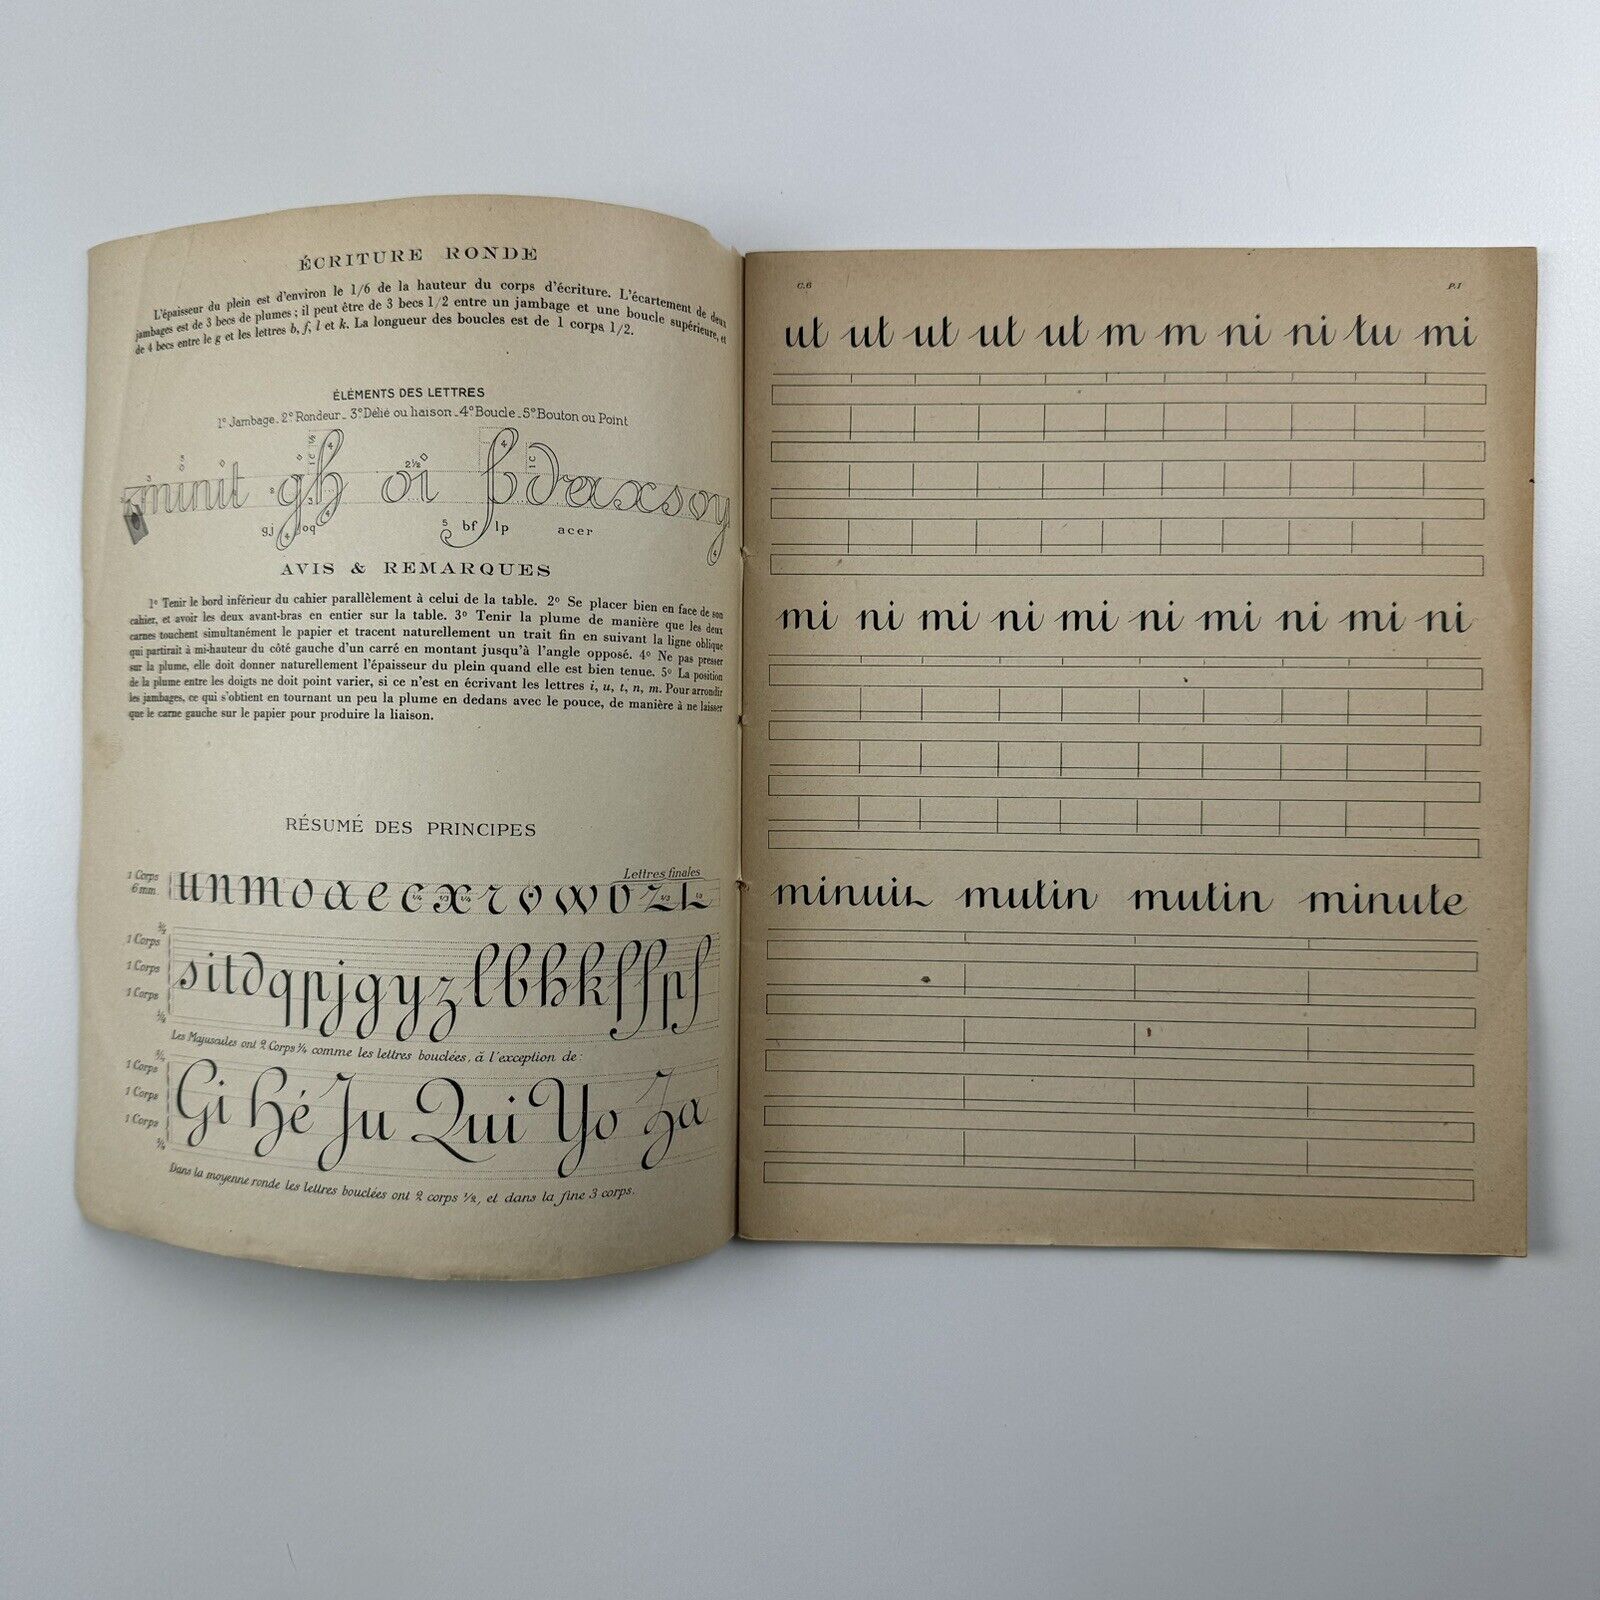 ÉCRITURE RONDE
L'épaisseur du plein est d'environ le 1/6 de la hauteur du corps d'écriture. L'écartement de deux
jambages est de 3 becs de plumes ; il peut être de 3 becs 1/2 entre un jambage et une boucle supérieure, et
de 4 becs entre le g et les lettres b, f, l et k. La longueur des boucles est de 1 corps 1/2.
ÉLÉMENTS DES LETTRES
1º Jambage_2º Rondeur_3º Délié ou liaison_4º Boucle_5º Bouton ou Point
minit gh oi fdaxsoy
gj oq 5 bf lp acer
AVIS & REMARQUES
1º Tenir le bord inférieur du cahier parallèlement à celui de la table. 2º Se placer bien en face de son
cahier, et avoir les deux avant-bras en entier sur la table. 3º Tenir la plume de manière que les deux
carnes touchent simultanément le papier et tracent naturellement un trait fin en suivant la ligne oblique
qui partirait à mi-hauteur du côté gauche d'un carré en montant jusqu'à l'angle opposé. 4º Ne pas presser
sur la plume, elle doit donner naturellement l'épaisseur du plein quand elle est bien tenue. 5º La position
de la plume entre les doigts ne doit point varier, si ce n'est en écrivant les lettres i, u, t, n, m. Pour arrondir
les jambages, ce qui s'obtient en tournant un peu la plume en dedans avec le pouce, de manière à ne laisser
que le carne gauche sur le papier pour produire la liaison.
RÉSUMÉ DES PRINCIPES
Lettres finales
1 Corps
6 mm.
unmoaecxrvwozt
3/4
1 Corps
1 Corps
1 Corps
3/4
sitdqpjgyzlbhkffpf
Les Majuscules ont 2 Corps 3/4 comme les lettres bouclées, à l'exception de :
3/4
1 Corps
1 Corps
1 Corps
3/4
Gi Hé Ju Qui Yo Za
Dans la moyenne ronde les lettres bouclées ont 2 corps 1/2, et dans la fine 3 corps.
C.6 P.1
ut ut ut ut ut m m ni ni tu mi
mi ni mi ni mi ni mi ni mi ni
minuit mutin mutin minute